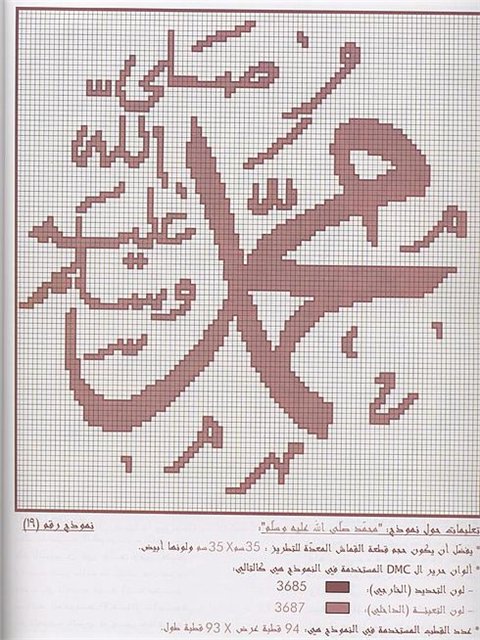 صلى
الله
عليه
وسلم
محمد
تعليمات حول نموذج: "محمّد صلى الله عليه وسلم":
نموذج رقم (١٩)
* يفضّل أن يكون حجم قطعة القماش المعدّة للتطريز : 35سم X 35سم ولونها أبيض.
* ألوان حرير ال DMC المستخدمة في النموذج هي كالتالي:
- لون التحديد (الخارجي): 3685
- لون التعبئة (الداخلي): 3687
* عدد القطب المستخدمة في النموذج هي: 94 قطبة عرض X 93 قطبة طول.